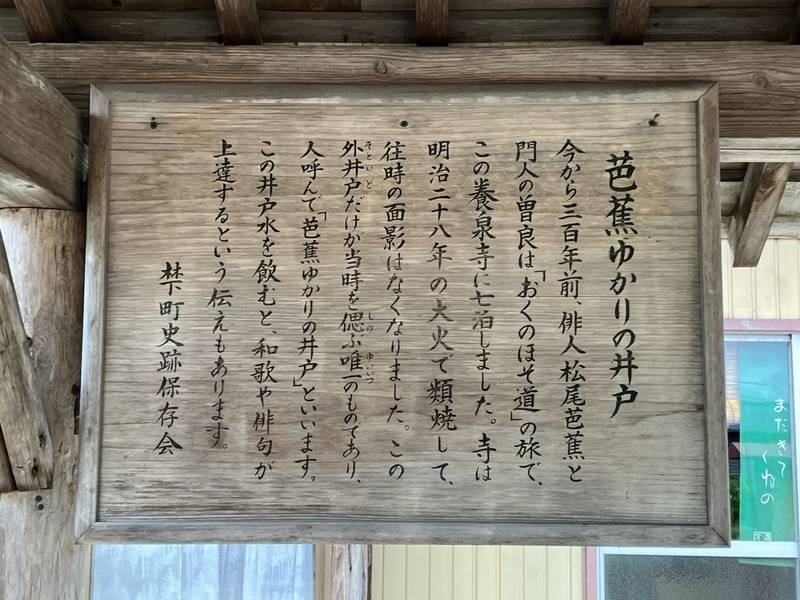 芭蕉ゆかりの井戸
今から三百年前、俳人松尾芭蕉と
門人の曽良は「おくのほそ道」の旅で、
この養泉寺に七泊しました。寺は
明治二十八年の大火で類焼して、
往時の面影はなくなりました。この
外井戸だけが当時を偲ぶ唯一のものであり、
そといど
しの
ゆいつ
人呼んで「芭蕉ゆかりの井戸」といいます。
この井戸水を飲むと、和歌や俳句が
上達するという伝えもあります。
梺町史跡保存会
まだきて
くねの